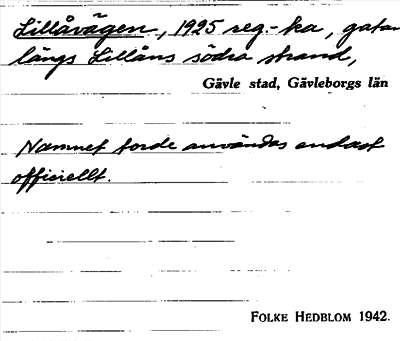 Lillåvägen, 1925 reg.-ka, gatan
längs Lillåns södra strand,
Gävle stad, Gävleborgs län
Namnet torde användas endast
officiellt.
FOLKE HEDBLOM 1942.